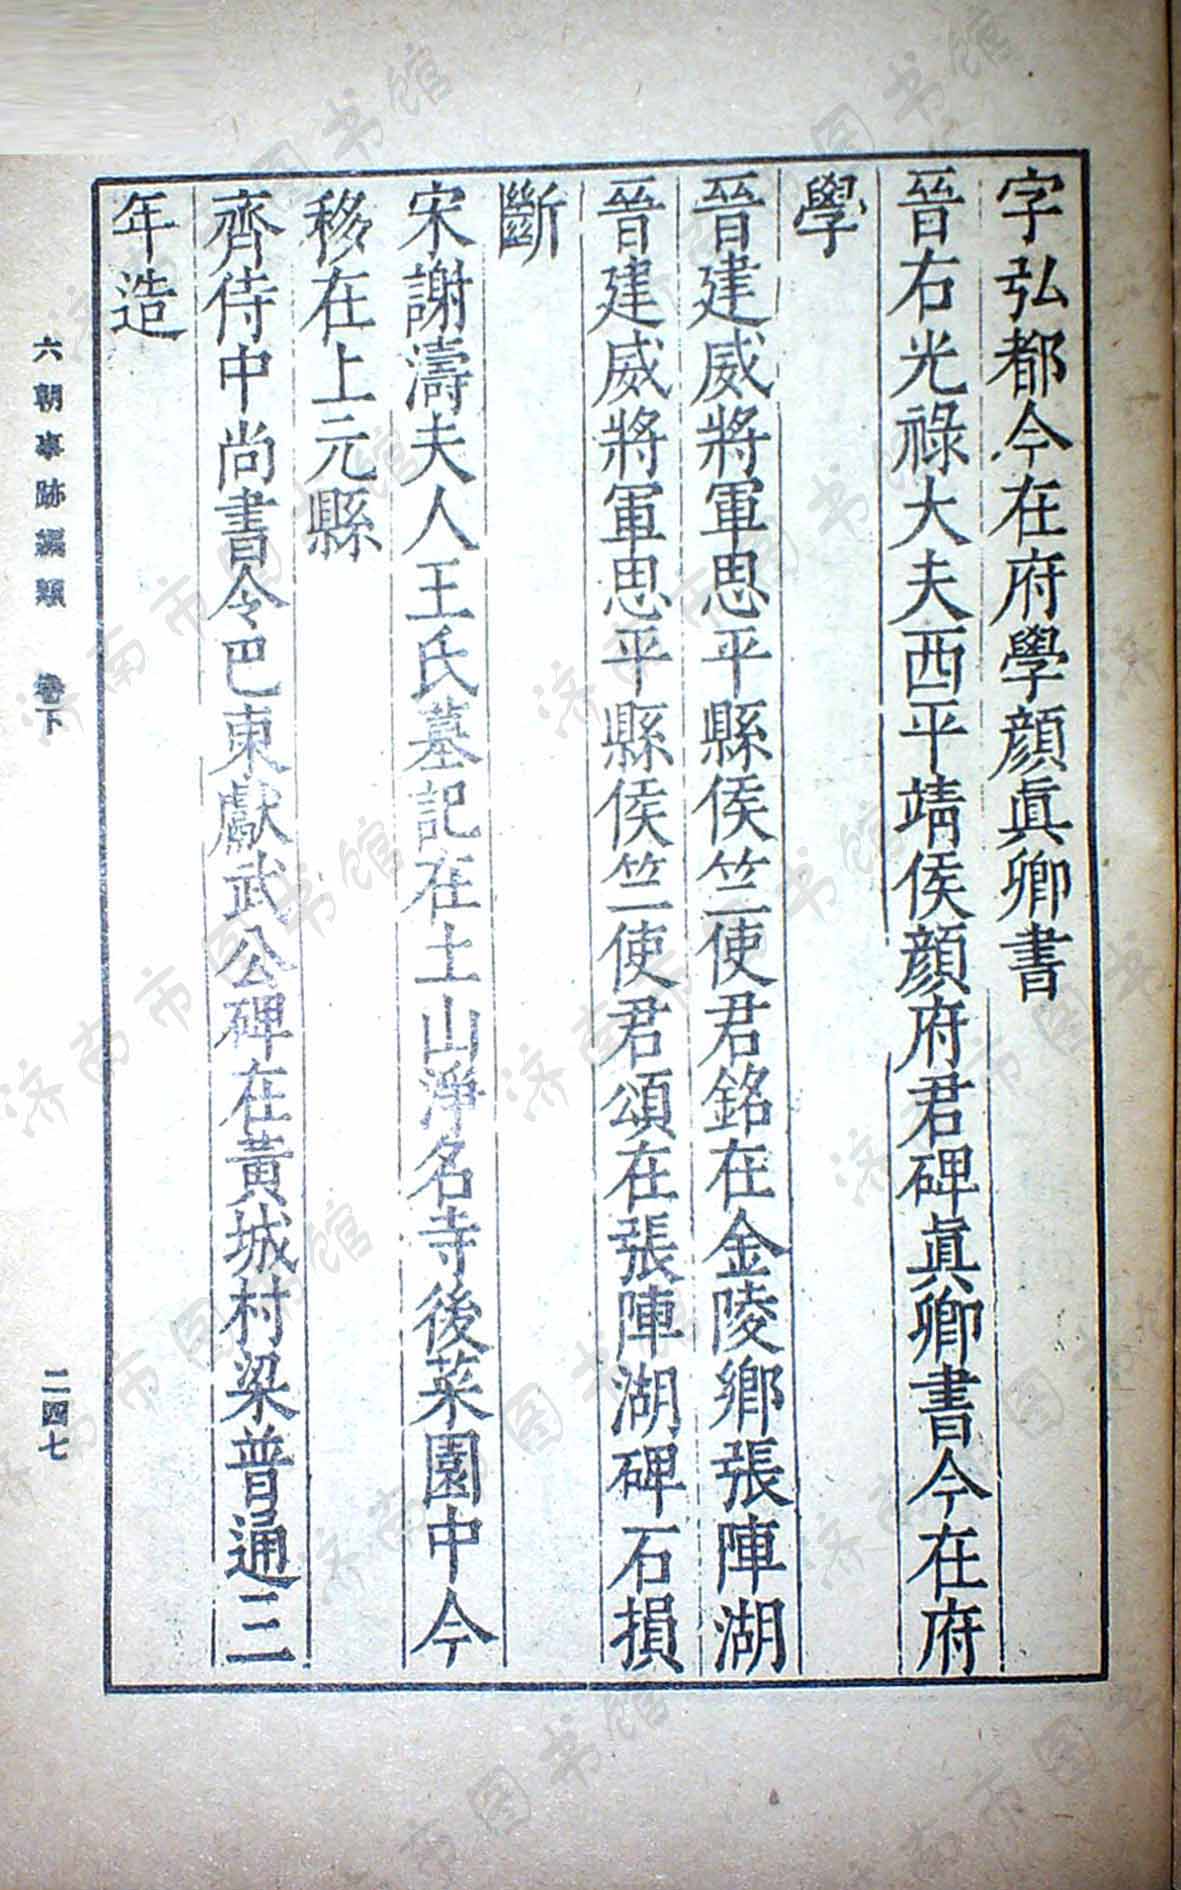 字弘都今在府學顔眞卿書
晉右光祿大夫西平靖侯顔府君碑眞卿書今在府
學
晉建威將軍思平縣侯竺使君銘在金陵鄉張陣湖
晉建威將軍思平縣侯竺使君頌在張陣湖碑石損
斷
宋謝濤夫人王氏墓記在土山淨名寺後菜園中今
移在上元縣
齊侍中尚書令巴東獻武公碑在黃城村梁普通三
年造
六朝事跡編類 卷下
二四七
济南市图书馆